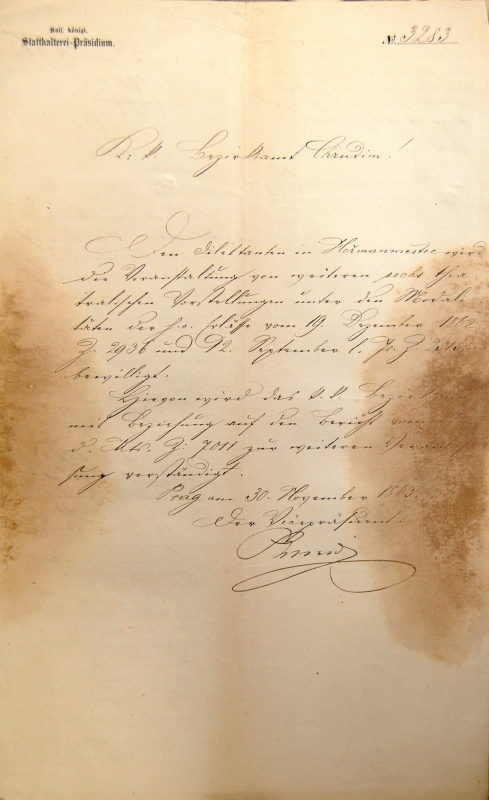 Kais. königl.
Statthalterei-Präsidium.
Nr. 3283
K: k. Bezirksamt Chrudim!
Den Dilettanten in Heřmanmestec wird
die Veranstaltung von weiteren sechs thea
tralischen Vorstellungen unter den Modali
täten der h.o. Erlässe vom 19. Dezember 1862
Z. 2936 und 12. September l. Js. Z.
bewilligt.
Hievon wird das k. k. Bezirksamt
mit Beziehung auf den Bericht vom
d. Mts. Z: 7011 zur weiteren Veranlas
sung verständigt.
Prag am 30. November 1863.
Der Vicepräsident: